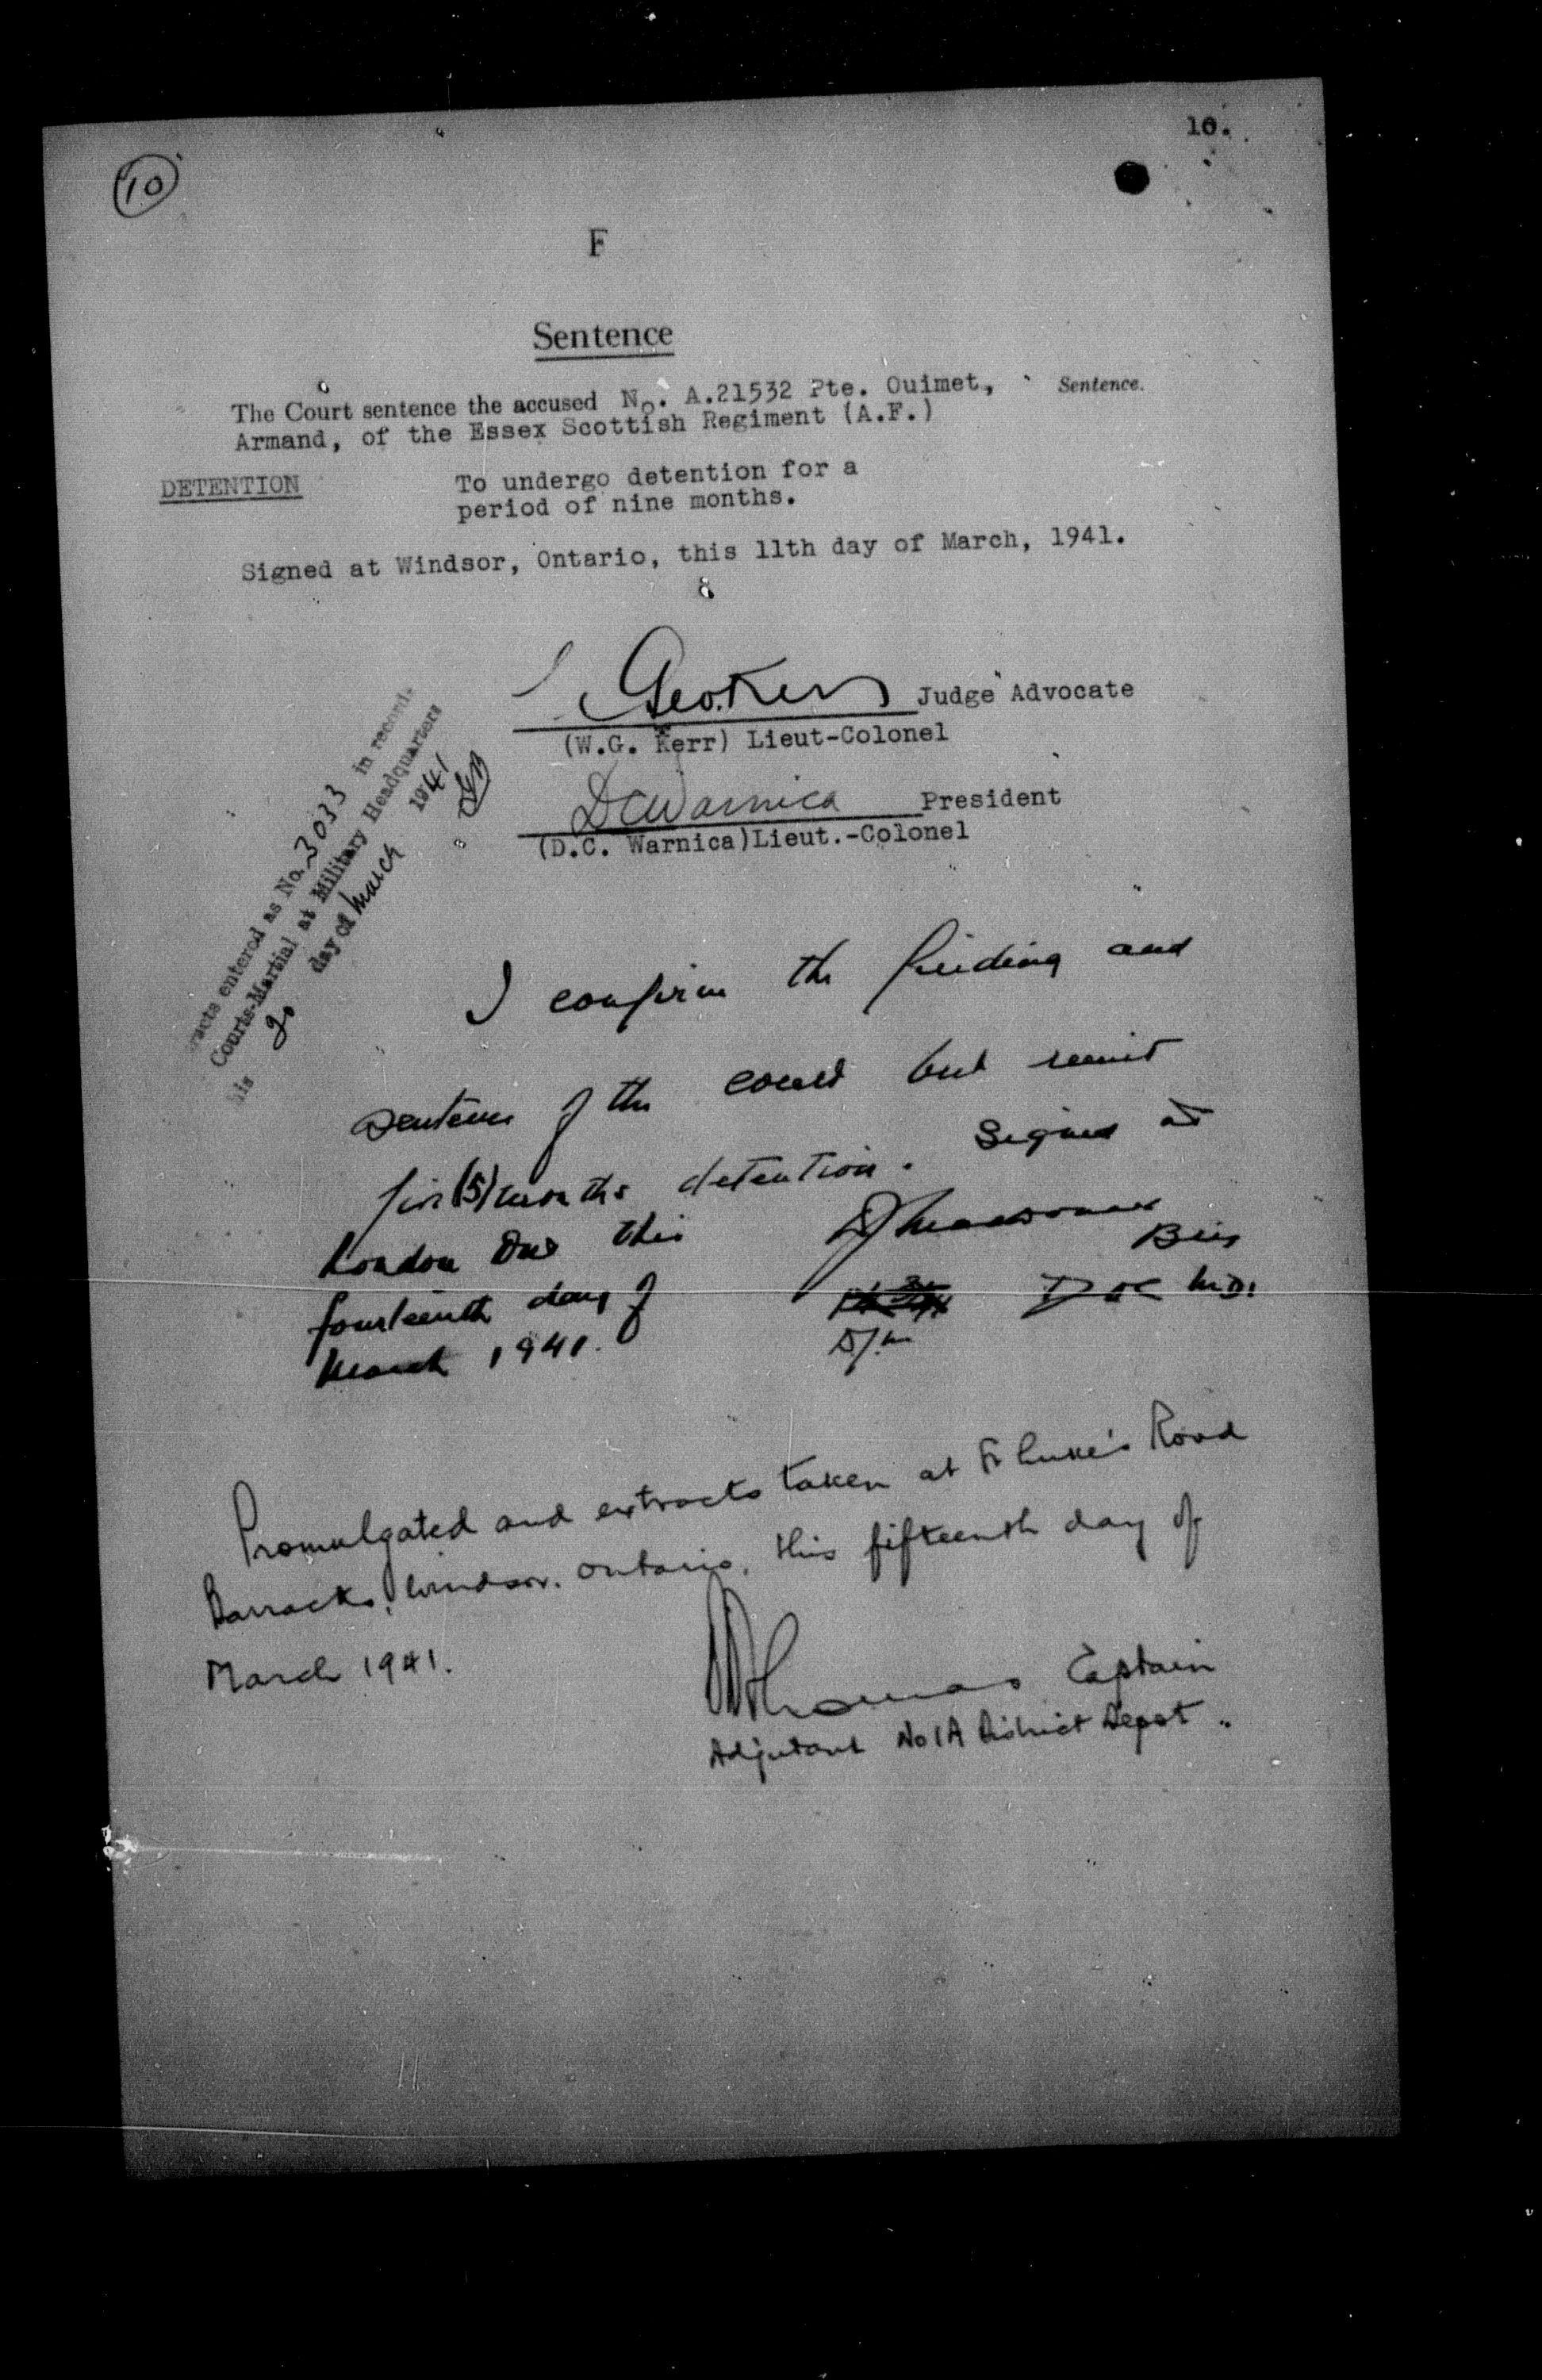 10.
10
F
Sentence
The Court sentence the accused No. A.21532 Pte. Ouimet, Sentence.
Armand, of the Essex Scottish Regiment (A.F.)
DETENTION To undergo detention for a
period of nine months.
Signed at Windsor, Ontario, this 11th day of March, 1941.
Geo. Kerr Judge Advocate
(W.G. Kerr) Lieut-Colonel
DCWarnica President
(D.C. Warnica)Lieut.-Colonel
racts entered as No. 3033 in records
Courts-Martial at Military Headquarters
his 20 day of March 1941
I confirm the finding and
sentence of the court but remit
five (5) months detention. Signed at
London Ont this
Brig
fourteenth day of DOC M.D.1
March 1941.
Promulgated and extracts taken at St Luke's Road
Barracks, Windsor, Ontario, this fifteenth day of
March 1941.
Thomas Captain
Adjutant No 1A District Depot.